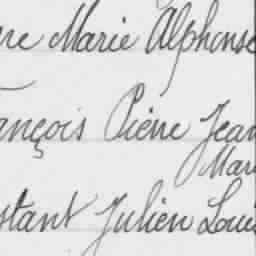 re Marie Alphonse
ançois Pierre Jean
Mari
stant Julien Louis